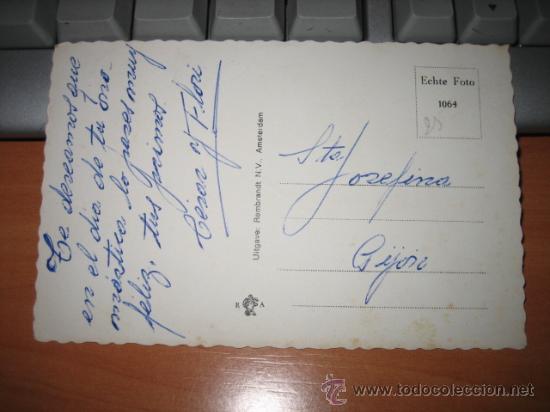 Te deseamos que
en el dia de tu ono-
mástica lo pases muy
feliz, tus primos
Cesar y Flori
Uitgave: Rembrandt N.V., Amsterdam
R A
Echte Foto
1064
Sta
Josefina
Gijón
todocoleccion
www.todocoleccion.net